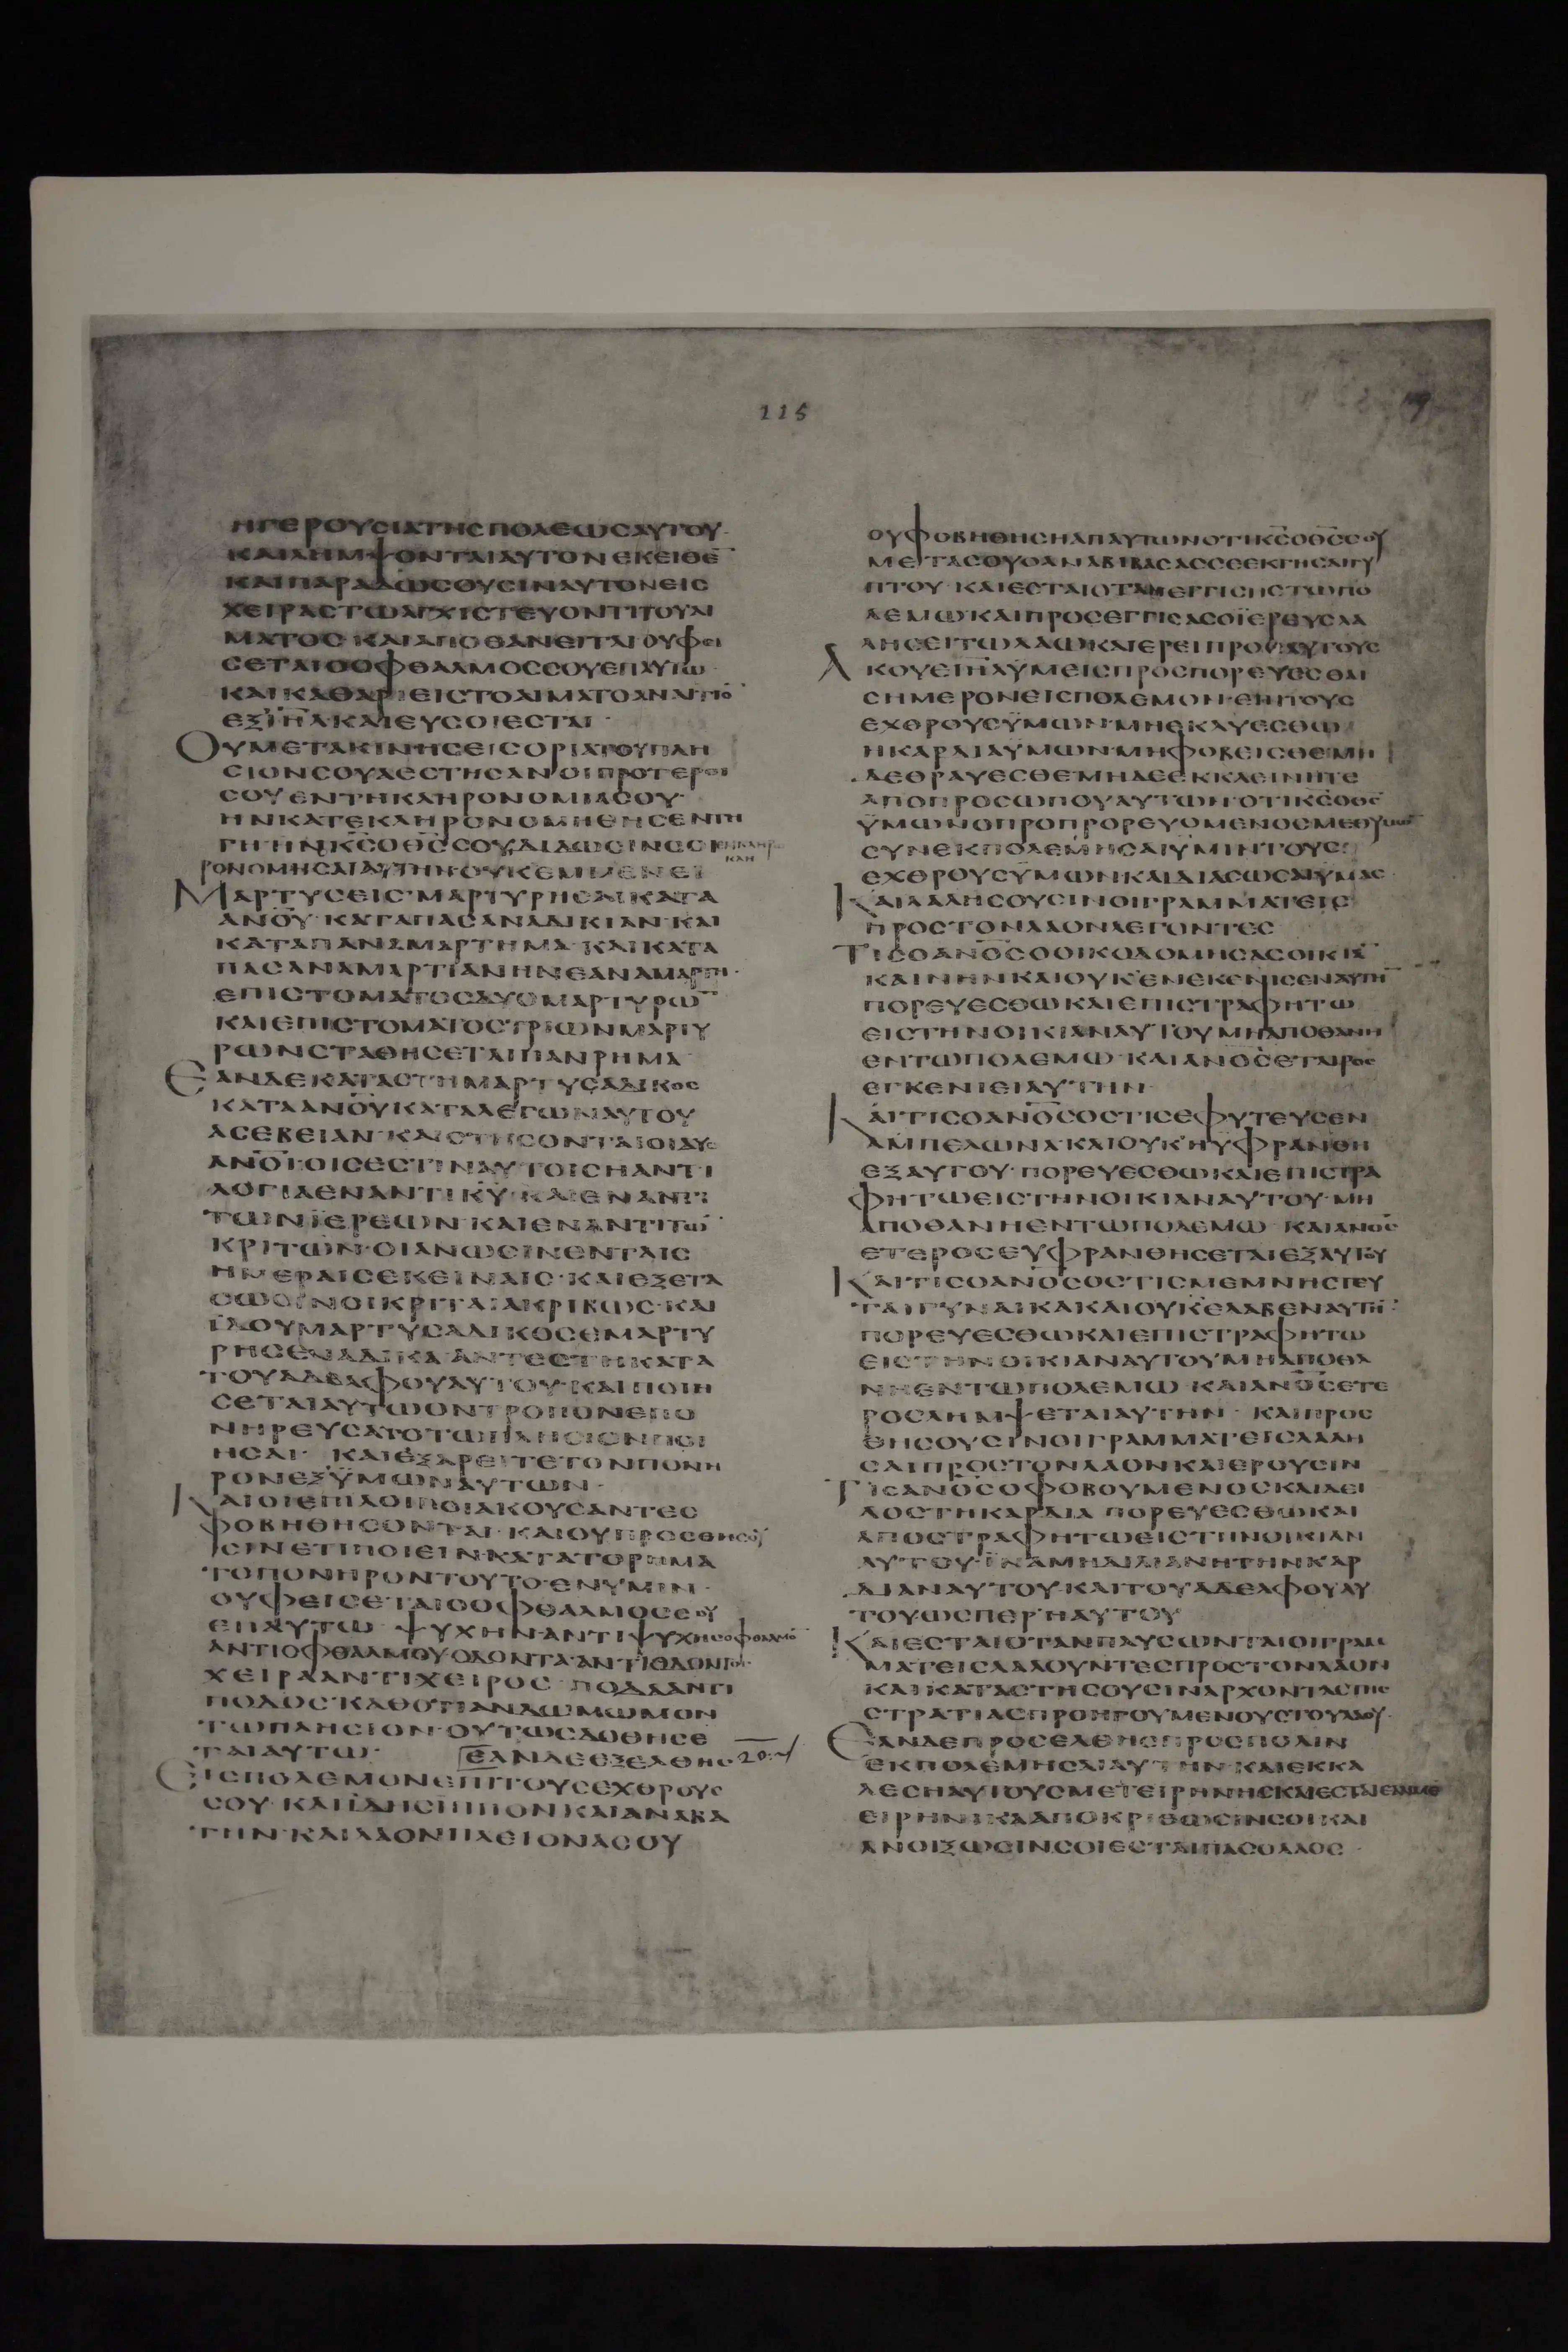 115
ΗΓΕΡΟΥΣΙΑΤΗΣΠΟΛΕΩΣΑΥΤΟΥ
ΚΑΙΛΗΜΨΟΝΤΑΙΑΥΤΟΝΕΚΕΙΘΕ̄
ΚΑΙΠΑΡΑΔΩΣΟΥΣΙΝΑΥΤΟΝΕΙΣ
ΧΕΙΡΑΣΤΩΑΓΧΙΣΤΕΥΟΝΤΙΤΟΥΑΙ
ΜΑΤΟΣ·ΚΑΙΑΠΟΘΑΝΕΙΤΑΙΟΥΦΕΙ
ΣΕΤΑΙΟΟΦΘΑΛΜΟΣΣΟΥΕΠΑΥΤΩ·
ΚΑΙΚΑΘΑΡΙΕΙΣΤΟΑΙΜΑΤΟΑΝΑΙΤΙΟ̄
ΕΞΙΗ̄Λ·ΚΑΙΕΥΣΟΙΕΣΤΑΙ·
ΟΥΜΕΤΑΚΙΝΗΣΕΙΣΟΡΙΑΤΟΥΠΛΗ
ΣΙΟΝΣΟΥΑΕΣΤΗΣΑΝΟΙΠΡΟΤΕΡΟΙ
ΣΟΥΕΝΤΗΚΛΗΡΟΝΟΜΙΑΣΟΥ·
ΗΝΚΑΤΕΚΛΗΡΟΝΟΜΗΘΗΣΕΝΤΗ
ΓΗΗΝΚ̄Σ̄ΟΘ̄Σ̄ΣΟΥΔΙΔΩΣΙΝΣΟΙ
ΡΟΝΟΜΗΣΑΙΑΥΤΗΝΟΥΚΕΜΜΕΝΕΙ
ΜΑΡΤΥΣΕΙΣ·ΜΑΡΤΥΡΗΣΑΙΚΑΤΑ
ΑΝ̄Ο̄Ῡ·ΚΑΤΑΠΑΣΑΝΑΔΙΚΙΑΝ·ΚΑΙ
ΚΑΤΑΠΑΝΑΜΑΡΤΗΜΑ·ΚΑΙΚΑΤΑ
ΠΑΣΑΝΑΜΑΡΤΙΑΝΗΝΕΑΝΑΜΑΡΤΗ·
ΕΠΙΣΤΟΜΑΤΟΣΔΥΟΜΑΡΤΥΡΩ̄
ΚΑΙΕΠΙΣΤΟΜΑΤΟΣΤΡΙΩΝΜΑΡΤΥ
ΡΩΝΣΤΑΘΗΣΕΤΑΙΠΑΝΡΗΜΑ·
ΕΑΝΔΕΚΑΤΑΣΤΗΜΑΡΤΥΣΑΔΙΚΟΣ
ΚΑΤΑΑΝ̄Ο̄ῩΚΑΤΑΛΕΓΩΝΑΥΤΟΥ
ΑΣΕΒΕΙΑΝ·ΚΑΙΣΤΗΣΟΝΤΑΙΟΙΔΥΟ
ΑΝ̄Ο̄Ῑ·ΟΙΣΕΣΤΙΝΑΥΤΟΙΣΗΑΝΤΙ
ΛΟΓΙΑΕΝΑΝΤΙΚ̄Ῡ·ΚΑΙΕΝΑΝΤΙ
ΤΩΝΪΕΡΕΩΝ·ΚΑΙΕΝΑΝΤΙΤΩ̄
ΚΡΙΤΩΝ·ΟΙΑΝΩΣΙΝΕΝΤΑΙΣ
ΗΜΕΡΑΙΣΕΚΕΙΝΑΙΣ·ΚΑΙΕΞΕΤΑ
ΣΩΣΙΝΟΙΚΡΙΤΑΙΑΚΡΙΒΩΣ·ΚΑΙ
ΪΔΟΥΜΑΡΤΥΣΑΔΙΚΟΣΕΜΑΡΤΥ
ΡΗΣΕΝΑΔΙΚΑ·ΑΝΤΕΣΤΗΚΑΤΑ
ΤΟΥΑΔΕΛΦΟΥΑΥΤΟΥ·ΚΑΙΠΟΙΗ
ΣΕΤΑΙΑΥΤΩΟΝΤΡΟΠΟΝΕΠΟ
ΝΗΡΕΥΣΑΤΟΤΩΠΛΗΣΙΟΝΠΟΙ
ΗΣΑΙ· ΚΑΙΕΞΑΡΕΙΤΕΤΟΝΠΟΝΗ
ΡΟΝΕΞΫΜΩΝΑΥΤΩΝ·
ΚΑΙΟΙΕΠΙΛΟΙΠΟΙΑΚΟΥΣΑΝΤΕΣ
ΦΟΒΗΘΗΣΟΝΤΑΙ·ΚΑΙΟΥΠΡΟΣΘΗΣΟΥ
ΣΙΝΕΤΙΠΟΙΕΙΝΚΑΤΑΤΟΡΗΜΑ
ΤΟΠΟΝΗΡΟΝΤΟΥΤΟ·ΕΝΥΜΙΝ·
ΟΥΦΕΙΣΕΤΑΙΟΟΦΘΑΛΜΟΣΣΟΥ
ΕΠΑΥΤΩ ΨΥΧΗΝΑΝΤΙΨΥΧΗΣΟΦΘΑΛΜΟ̄
ΑΝΤΙΟΦΘΑΛΜΟΥ·ΟΔΟΝΤΑ·ΑΝΤΙΟΔΟΝΤΟΣ·
ΧΕΙΡΑΑΝΤΙΧΕΙΡΟΣ·ΠΟΔΑΑΝΤΙ
ΠΟΔΟΣ·ΚΑΘΟΤΙΑΝΔΩΜΩΜΟΝ
ΤΩΠΛΗΣΙΟΝ·ΟΥΤΩΣΔΟΘΗΣΕ
ΤΑΙΑΥΤΩ· ΕΑΝΔΕΕΞΕΛΘΗΣ 20:1
ΕΙΣΠΟΛΕΜΟΝΕΠΙΤΟΥΣΕΧΘΡΟΥΣ
ΣΟΥ·ΚΑΙΪΔΗΣΙΠΠΟΝΚΑΙΑΝΑΒΑ
ΤΗΝ·ΚΑΙΛΑΟΝΠΛΕΙΟΝΑΣΟΥ
ΟΥΦΟΒΗΘΗΣΗΑΠΑΥΤΩΝΟΤΙΚ̄Σ̄ΟΘ̄Σ̄ΣΟΥ
ΜΕΤΑΣΟΥΟΑΝΑΒΙΒΑΣΑΣΣΕΕΚΓΗΣΑΙΓΥ
ΠΤΟΥ·ΚΑΙΕΣΤΑΙΟΤΑΝΕΓΓΙΣΗΣΤΩΠΟ
ΛΕΜΩ·ΚΑΙΠΡΟΣΕΓΓΙΣΑΣΟΪΕΡΕΥΣΛΑ
ΛΗΣΕΙΤΩΛΑΩ·ΚΑΙΕΡΕΙΠΡΟΣΑΥΤΟΥΣ
ΑΚΟΥΕΙΗ̄Λ̄ΫΜΕΙΣΠΡΟΣΠΟΡΕΥΕΣΘΑΙ
ΣΗΜΕΡΟΝΕΙΣΠΟΛΕΜΟΝ·ΕΠΙΤΟΥΣ
ΕΧΘΡΟΥΣΫΜΩΝ·ΜΗΕΚΛΥΕΣΘΩ
ΗΚΑΡΔΙΑΥΜΩΝ·ΜΗΦΟΒΕΙΣΘΕΜΗ
ΔΕΘΡΑΥΕΣΘΕ·ΜΗΔΕΕΚΚΛΕΙΝΗΤΕ
ΑΠΟΠΡΟΣΩΠΟΥΑΥΤΩΝ·ΟΤΙΚ̄Σ̄ΟΘ̄Σ̄
ΫΜΩΝΟΠΡΟΠΡΟΡΕΥΟΜΕΝΟΣΜΕΘΥΜΩ̄
ΣΥΝΕΚΠΟΛΕΜΗΣΑΙΥΜΙΝΤΟΥΣ
ΕΧΘΡΟΥΣΫΜΩΝΚΑΙΔΙΑΣΩΣΑΙΥΜΑΣ·
ΚΑΙΛΑΛΗΣΟΥΣΙΝΟΙΓΡΑΜΜΑΤΕΙΣ
ΠΡΟΣΤΟΝΛΑΟΝΛΕΓΟΝΤΕΣ
ΤΙΣΟΑΝ̄Ο̄Σ̄ΟΟΙΚΟΔΟΜΗΣΑΣΟΙΚΙᾹ
ΚΑΙΝΗΝΚΑΙΟΥΚΕΝΕΚΕΝΙΣΕΝΑΥΤΗ̄
ΠΟΡΕΥΕΣΘΩΚΑΙΕΠΙΣΤΡΑΦΗΤΩ
ΕΙΣΤΗΝΟΙΚΙΑΝΑΥΤΟΥΜΗΑΠΟΘΑΝΗ
ΕΝΤΩΠΟΛΕΜΩ·ΚΑΙΑΝ̄Ο̄Σ̄ΕΤΑΙΡΟΣ
ΕΓΚΕΝΙΕΙΑΥΤΗΝ·
ΚΑΙΤΙΣΟΑΝ̄Ο̄Σ̄ΟΣΤΙΣΕΦΥΤΕΥΣΕΝ
ΑΜΠΕΛΩΝΑ·ΚΑΙΟΥΚΗΥΦΡΑΝΘΗ
ΕΞΑΥΤΟΥ·ΠΟΡΕΥΕΣΘΩΚΑΙΕΠΙΣΤΡΑ
ΦΗΤΩΕΙΣΤΗΝΟΙΚΙΑΝΑΥΤΟΥ·ΜΗ
ΑΠΟΘΑΝΗΕΝΤΩΠΟΛΕΜΩ·ΚΑΙΑΝ̄Ο̄Σ̄
ΕΤΕΡΟΣΕΥΦΡΑΝΘΗΣΕΤΑΙΕΞΑΥΤΟΥ
ΚΑΙΤΙΣΟΑΝ̄Ο̄Σ̄ΟΣΤΙΣΜΕΜΝΗΣΤΕΥ
ΤΑΙΓΥΝΑΙΚΑΚΑΙΟΥΚΕΛΑΒΕΝΑΥΤΗ̄·
ΠΟΡΕΥΕΣΘΩΚΑΙΕΠΙΣΤΡΑΦΗΤΩ
ΕΙΣΤΗΝΟΙΚΙΑΝΑΥΤΟΥΜΗΑΠΟΘΑ
ΝΗΕΝΤΩΠΟΛΕΜΩ·ΚΑΙΑΝ̄Ο̄Σ̄ΕΤΕ
ΡΟΣΛΗΜΨΕΤΑΙΑΥΤΗΝ· ΚΑΙΠΡΟΣ
ΘΗΣΟΥΣΙΝΟΙΓΡΑΜΜΑΤΕΙΣΛΑΛΗ
ΣΑΙΠΡΟΣΤΟΝΛΑΟΝΚΑΙΕΡΟΥΣΙΝ
ΤΙΣΑΝ̄Ο̄Σ̄ΟΦΟΒΟΥΜΕΝΟΣΚΑΙΔΕΙ
ΛΟΣΤΗΚΑΡΔΙΑ ΠΟΡΕΥΕΣΘΩΚΑΙ
ΑΠΟΣΤΡΑΦΗΤΩΕΙΣΤΗΝΟΙΚΙΑΝ
ΑΥΤΟΥ·ΪΝΑΜΗΔΙΛΙΑΝΗΤΗΝΚΑΡ
ΔΙΑΝΑΥΤΟΥ·ΚΑΙΤΟΥΑΔΕΛΦΟΥΑΥ
ΤΟΥΩΣΠΕΡΗΑΥΤΟΥ
ΚΑΙΕΣΤΑΙΟΤΑΝΠΑΥΣΩΝΤΑΙΟΙΓΡΑΜ
ΜΑΤΕΙΣΛΑΛΟΥΝΤΕΣΠΡΟΣΤΟΝΛΑΟΝ
ΚΑΙΚΑΤΑΣΤΗΣΟΥΣΙΝΑΡΧΟΝΤΑΣΤΗΣ
ΣΤΡΑΤΙΑΣΠΡΟΗΓΟΥΜΕΝΟΥΣΤΟΥΛΑΟΥ·
ΕΑΝΔΕΠΡΟΣΕΛΘΗΣΠΡΟΣΠΟΛΙΝ
ΕΚΠΟΛΕΜΗΣΑΙΑΥΤΗΝ·ΚΑΙΕΚΚΑ
ΛΕΣΗΑΥΤΟΥΣΜΕΤΕΙΡΗΝΗΣ
ΕΙΡΗΝΙΚΑΑΠΟΚΡΙΘΩΣΙΝΣΟΙΚΑΙ
ΑΝΟΙΞΩΣΙΝΣΟΙΕΣΤΑΙΠΑΣΟΛΑΟΣ·